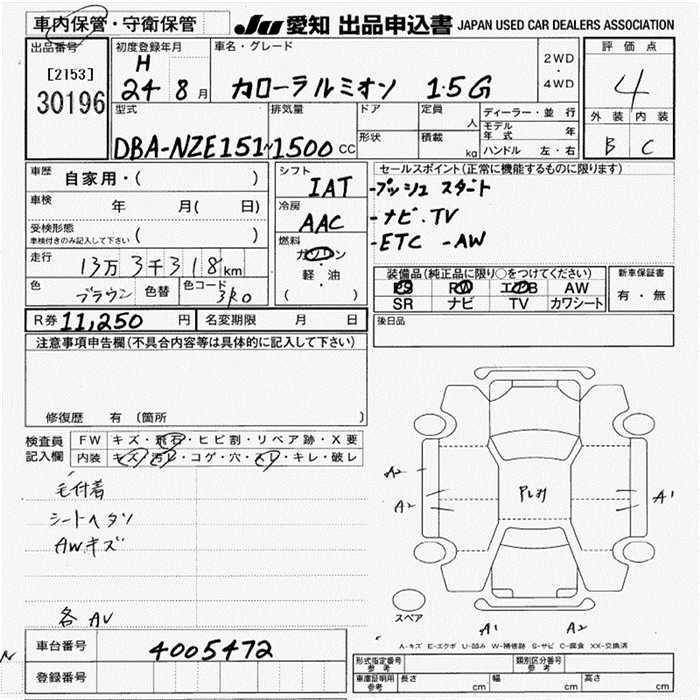 車内保管・守衛保管
JU 愛知 出品申込書 JAPAN USED CAR DEALERS ASSOCIATION
出品番号
[2153]
30196
初度登録年月
H
24 8月
車名・グレード
カローラルミオン 1.5G
2WD
・
4WD
評価点
4
外装 内装
B C
型式
DBA-NZE151
排気量
1500cc
ドア
形状
定員
人
積載
kg
ディーラー・並行
モデル年式 年
ハンドル 左・右
車歴 自家用・( )
車検 年 月( 日)
受検形態
車検付きのみ記入して下さい ( )
走行 13万3千318km
色 ブラウン 色替 色コード 3R0
シフト
IAT
冷房
AAC
燃料
ガソリン
・
軽・油
( )
セールスポイント(正常に機能するものに限ります)
-プッシュスタート
-ナビ.TV
-ETC -AW
装備品(純正品に限り○をつけてください)
PS PW エアB AW
SR ナビ TV カワシート
新車保証書
有・無
R券 11,250円 名変期限 月 日
後日品
注意事項申告欄(不具合内容等は具体的に記入して下さい)
修復歴 有 (箇所 )
検査員
記入欄
FW キズ・飛石・ヒビ割・リペア跡・X要
内装 キズ・汚レ・コゲ・穴・スレ・キレ・破レ
毛付着
シートヘタリ
AWキズ
各AV
A2
A2
A1
スペア
A1 A2
A-キズ E-エクボ U-凹み W-補修跡 S-サビ C-腐食 XX-交換済
車台番号 4005472
登録番号
形式指定番号
参考
類別区分番号
参考
車庫証明用
参考
長さ cm 幅 cm 高さ cm